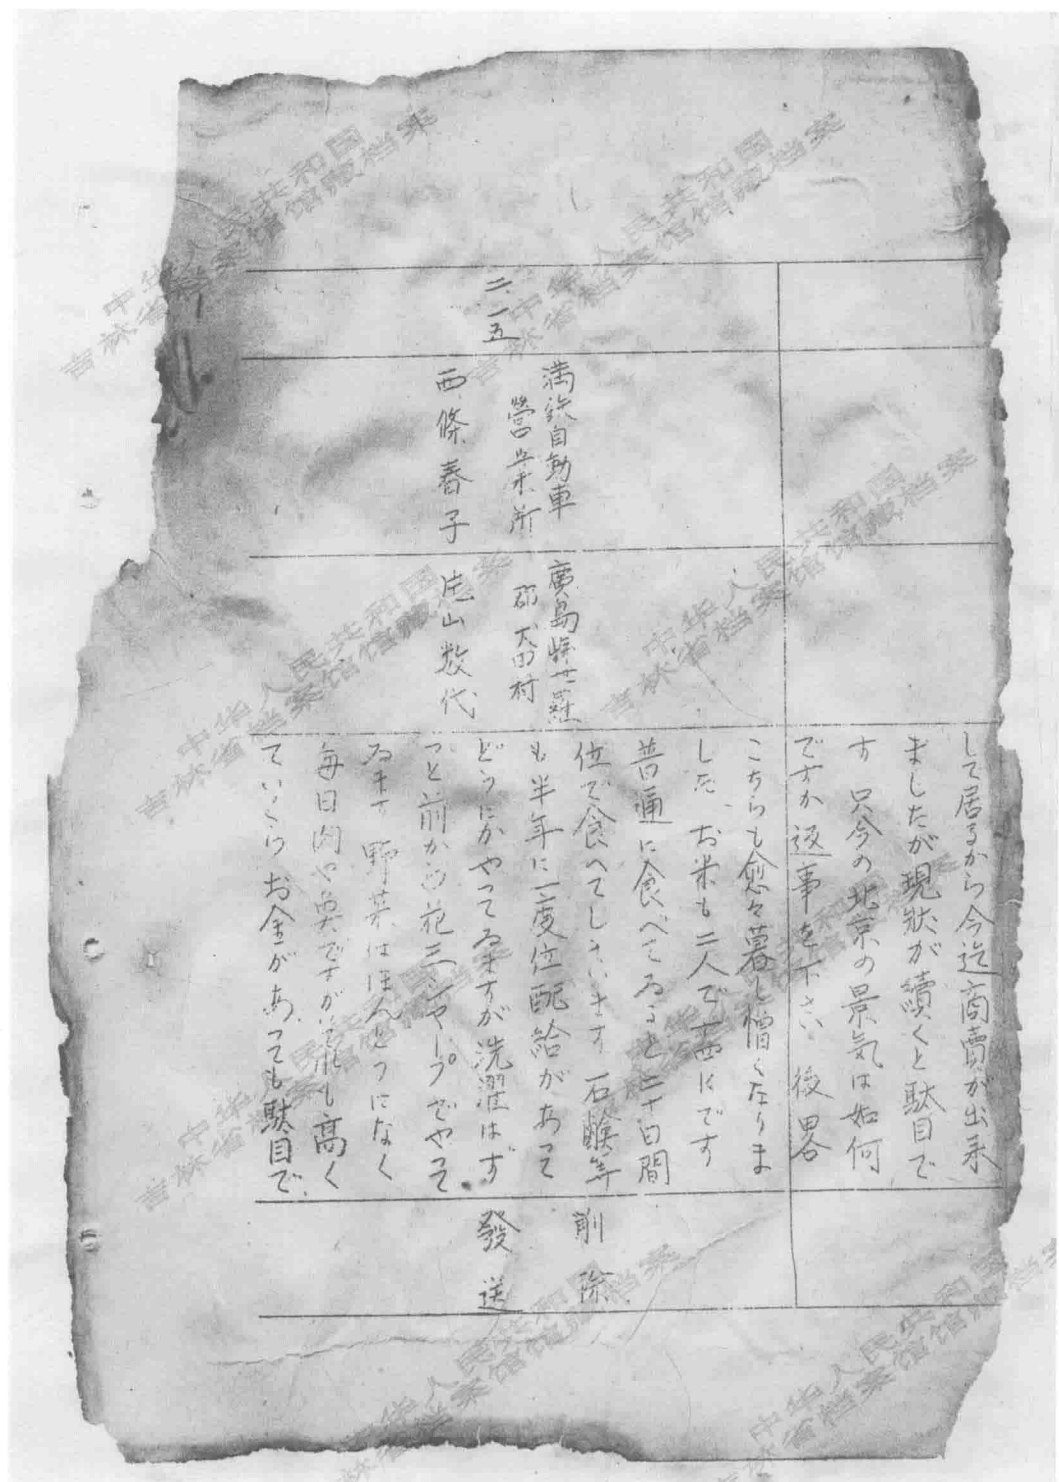 して居るから今迄商賣が出来
ましたが現狀が續くと駄目で
す 只今の北京の景気は如何
ですか返事を下さい 後畧
二、一五
満鉄自動車
營業所
西條春子
廣島縣世羅
郡大田村
片山数代
こちらも愈々暮し憎くなりま
した、お米も二人で
普通に食べてゐると二十日間
位で食べてしまいます 石鹸等
も半年に一度位配給があって
どうにかやってゐますが洗濯はず
っと前から花王シャープでやって
ゐます 野菜はほんとうになく
毎日肉や魚ですがそれも高く
ていくらお金があっても駄目で
削除
發送
中华人民共和国
吉林省档案馆馆藏档案